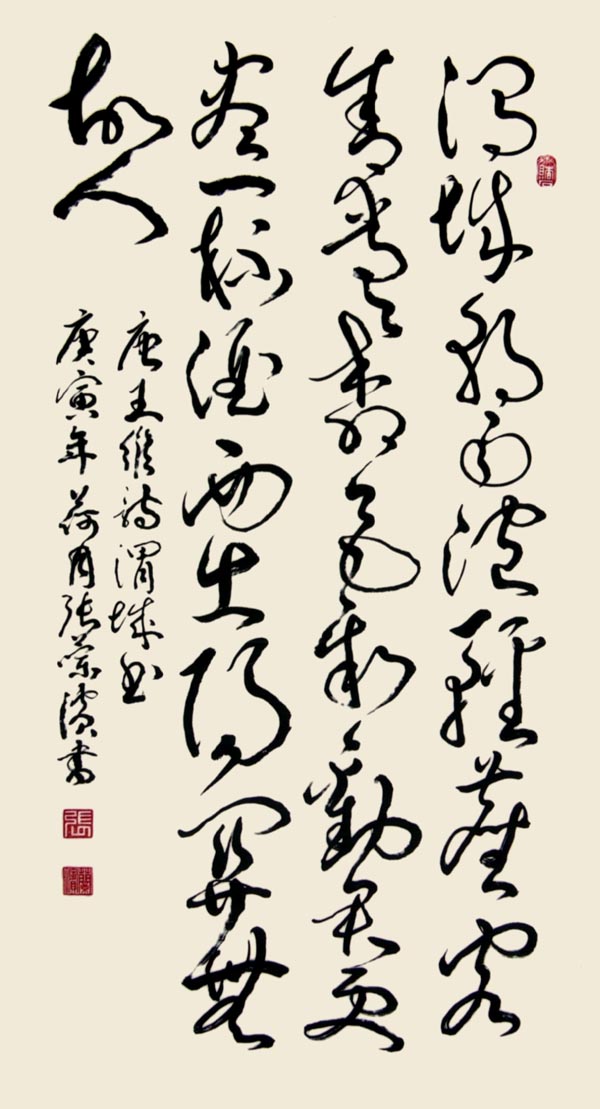 渭城朝雨浥輕塵客
舍青々柳色新勸君更
盡一杯酒西出陽關無
故人
唐王維詩渭城曲
庚寅年荷月張書
張